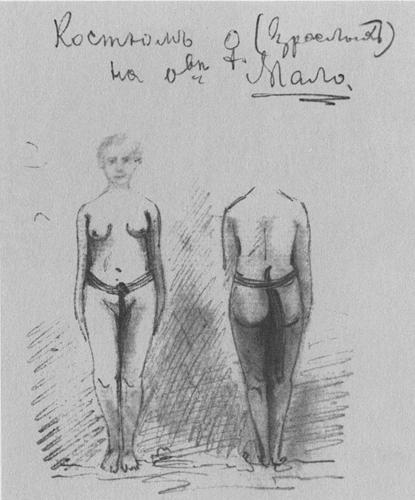 Костюмъ ♀ (взрослыхъ)
на о-вѣ Мало.